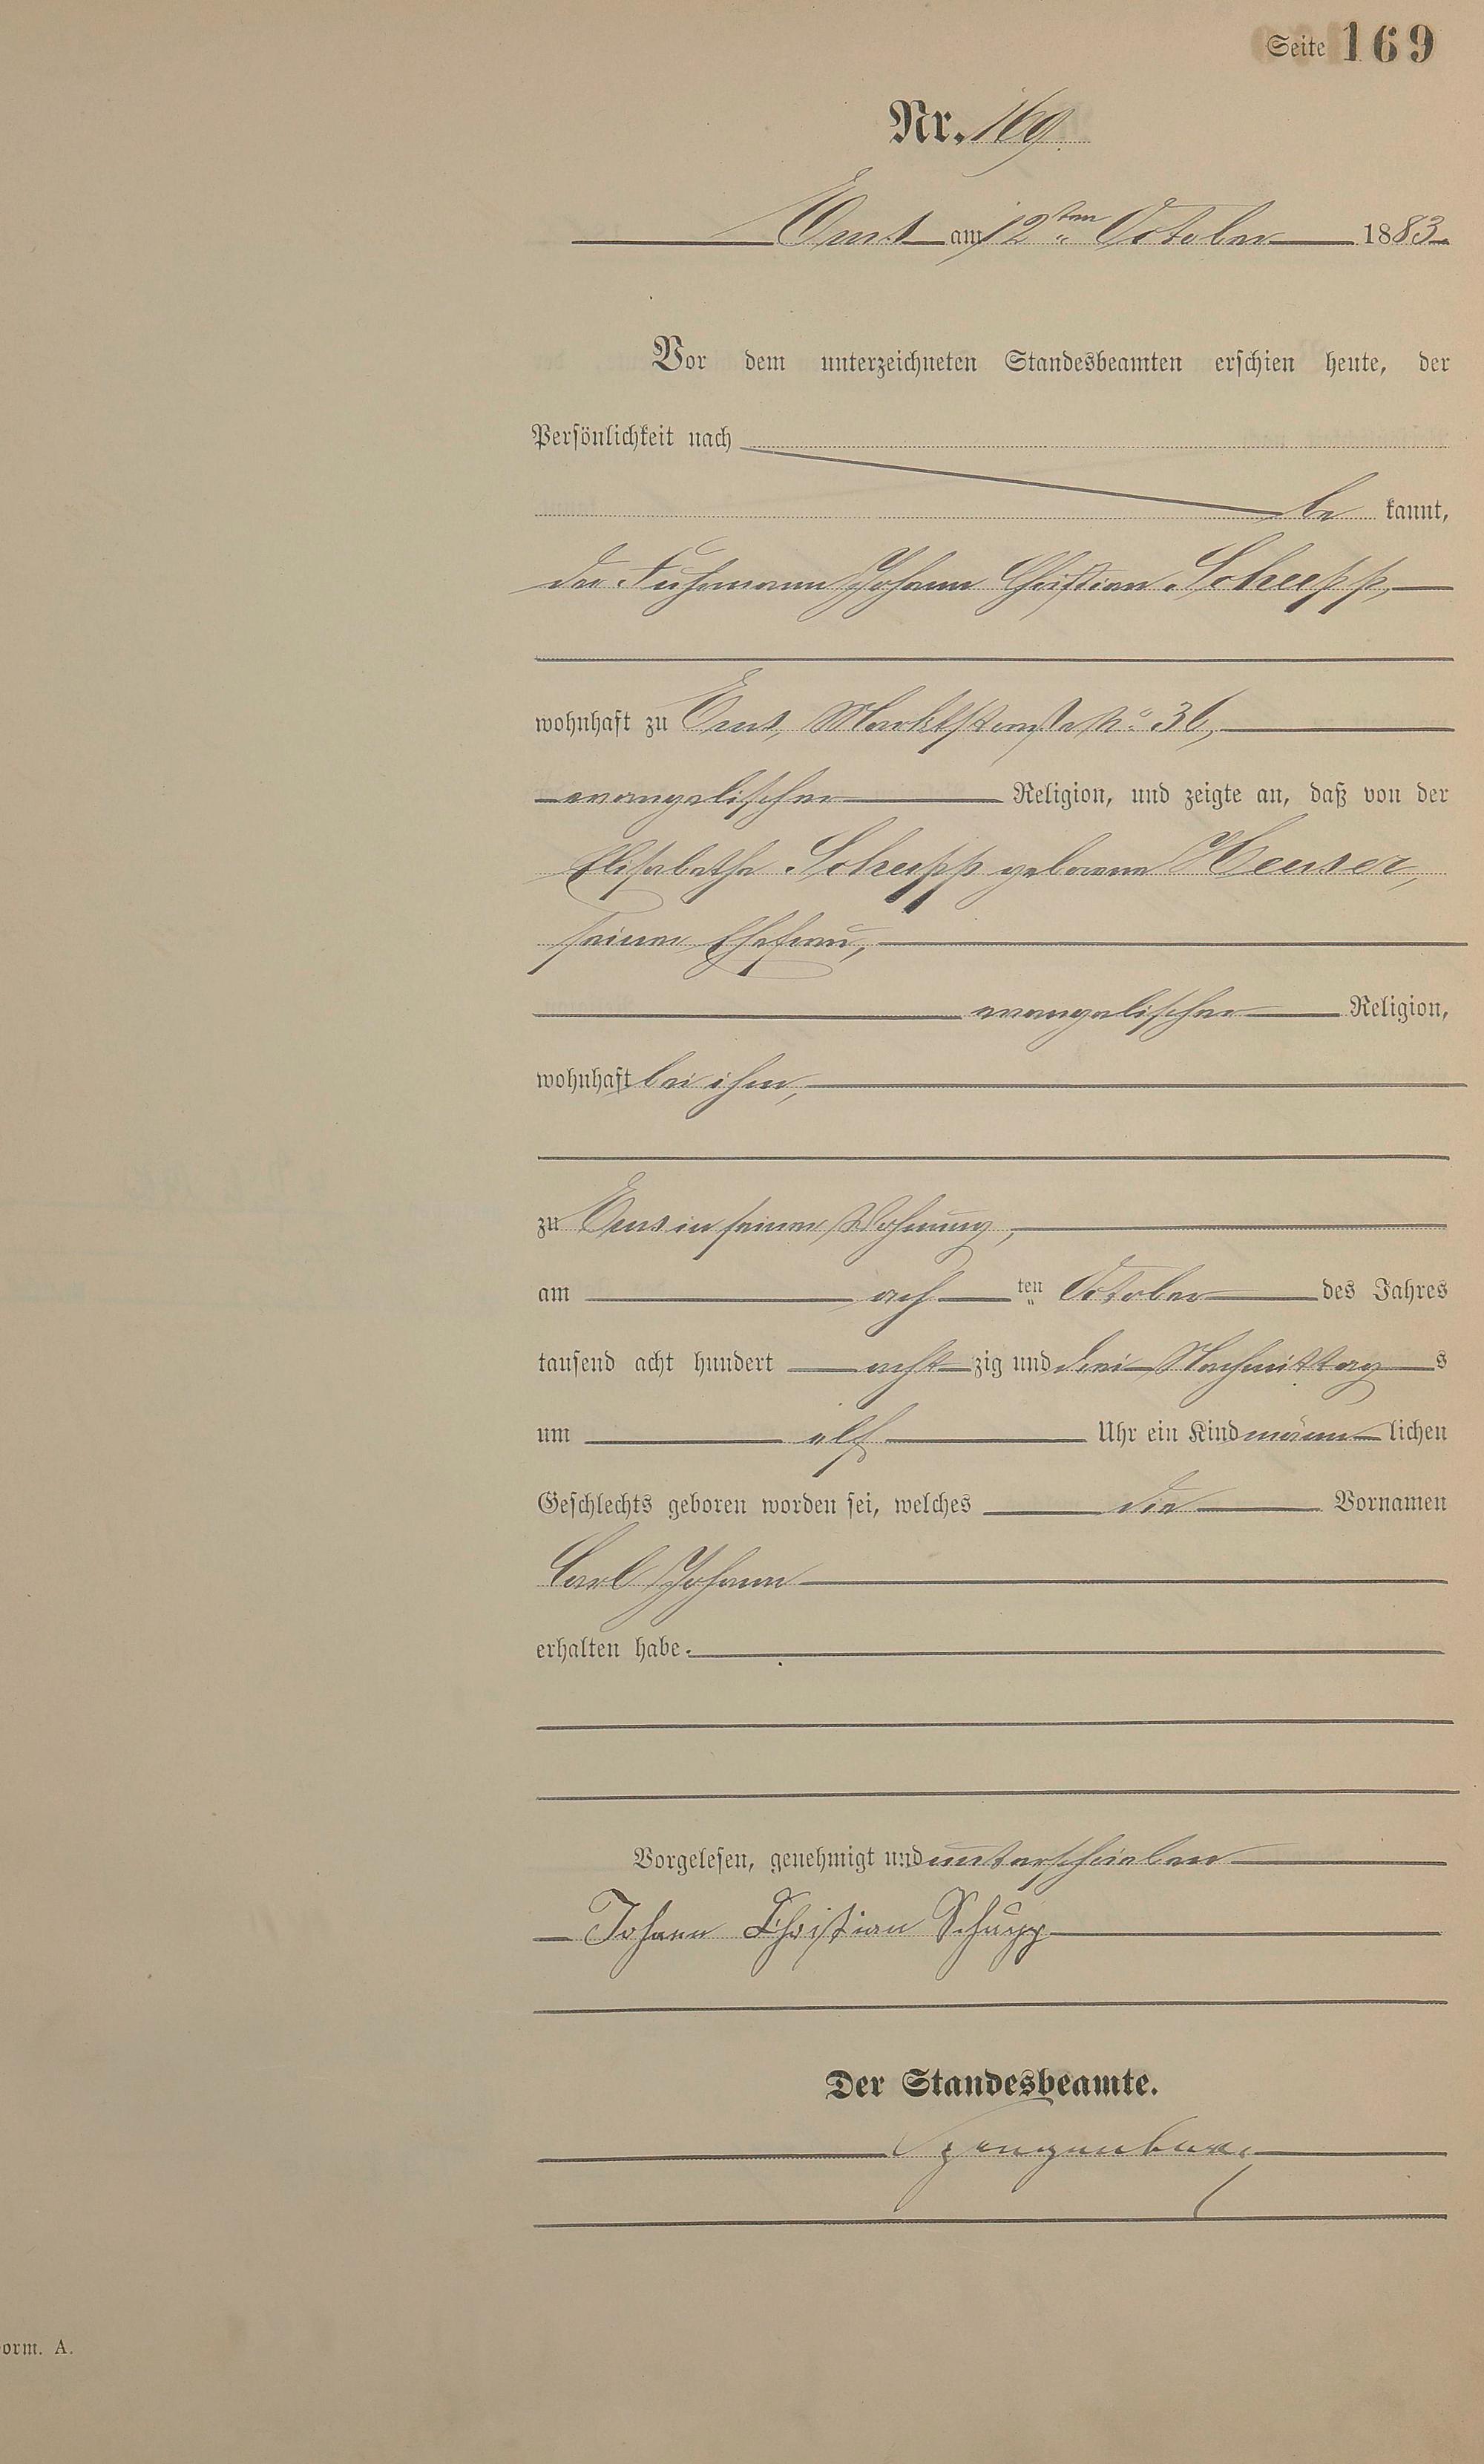 Seite 169
Nr. 169.
Ems am 12ten October 1883.
Vor dem unterzeichneten Standesbeamten erschien heute, der
Persönlichkeit nach
be kannt,
der Fuhrmann Johann Christian Schupp,
wohnhaft zu Ems, Marktstraße No 36,
evangelischer Religion, und zeigte an, daß von der
Elisabetha Schupp geborene Heuser,
seiner Ehefrau,
evangelischer Religion,
wohnhaft bei ihm,
zu Ems in seiner Wohnung,
am ach ten October des Jahres
tausend acht hundert acht zig und drei Nachmittag s
um elf Uhr ein Kind männ lichen
Geschlechts geboren worden sei, welches die Vornamen
Carl Johann
erhalten habe.
Vorgelesen, genehmigt und unterschrieben
Johann Christian Schupp
Der Standesbeamte.
orm. A.